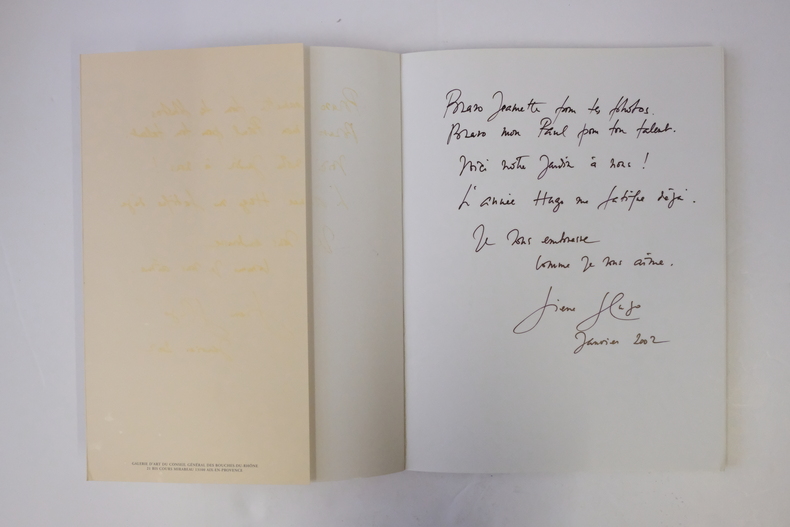 Bravo Jeannette pour tes photos.
Bravo mon Paul pour ton talent.
Voici notre Jardin à nous !
L'année Hugo me fatigue déjà.
Je vous embrasse
comme je vous aime.
Pierre Hugo
Janvier 2002
GALERIE D'ART DU CONSEIL GÉNÉRAL DES BOUCHES-DU-RHÔNE
21 BIS COURS MIRABEAU 13100 AIX-EN-PROVENCE